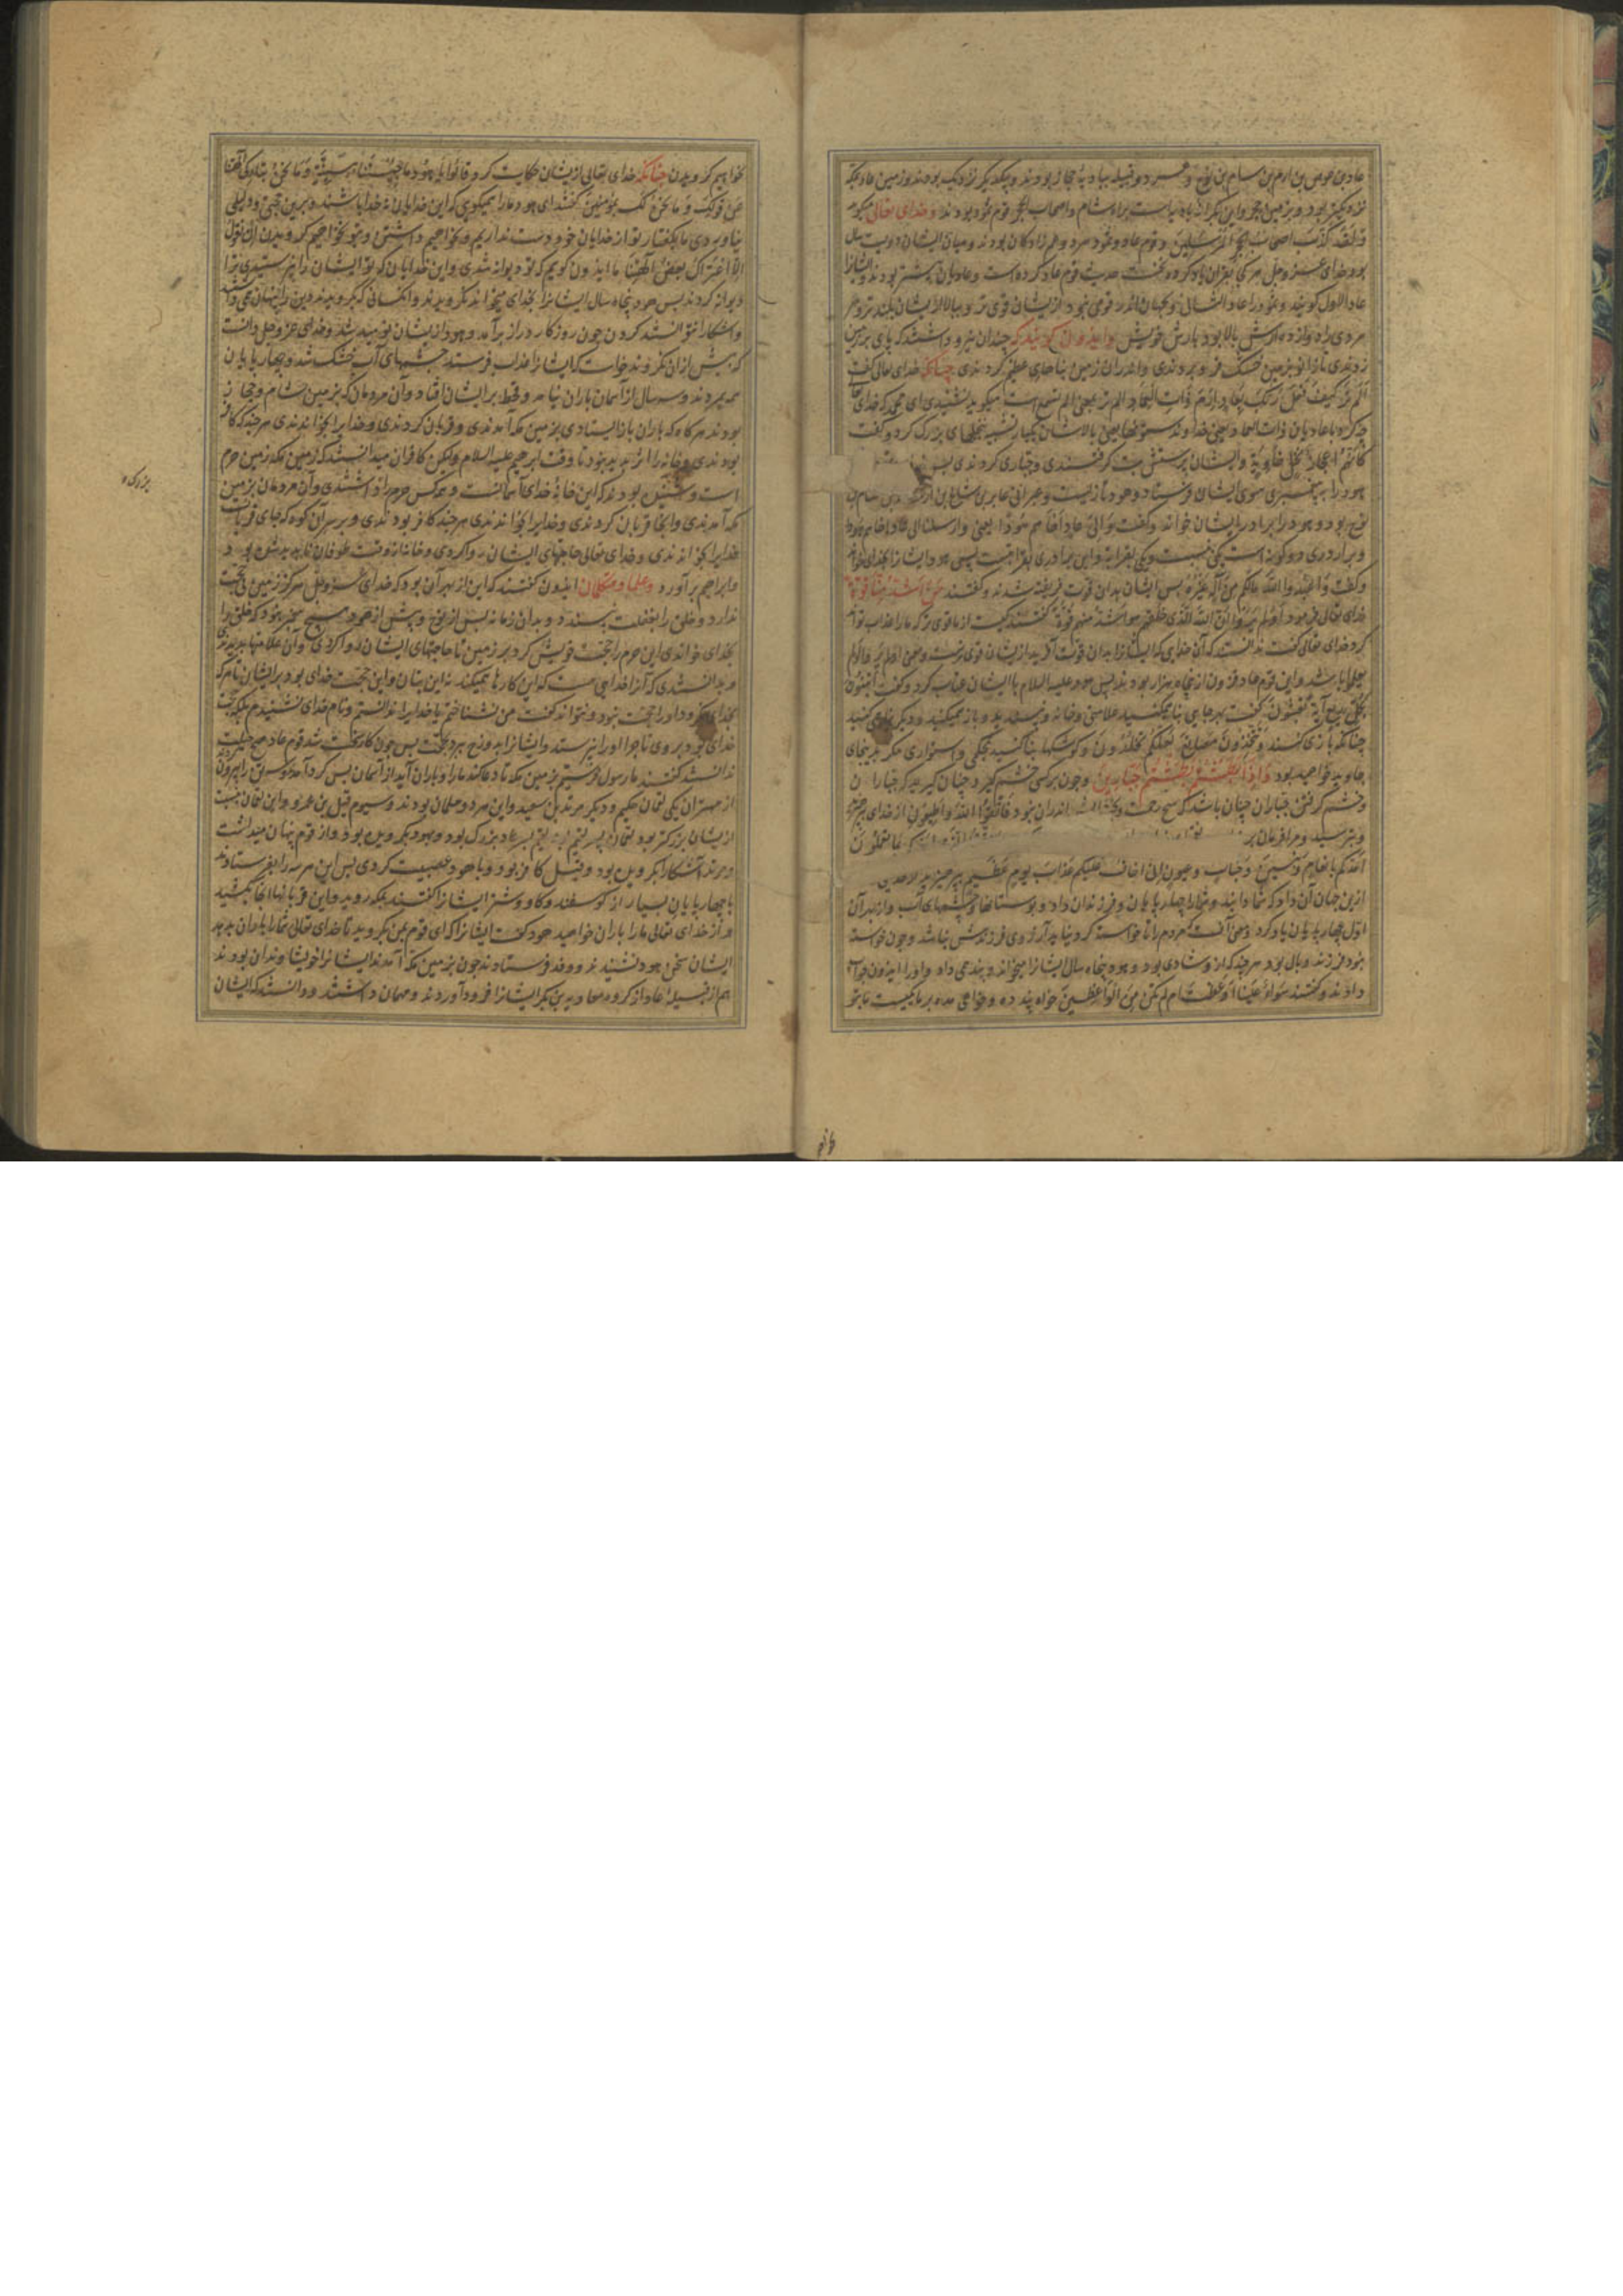 عاد بن عوص بن ارم بن سام بن نوح و هر دو قبیله ببادیهٔ حجاز بودند و بیکدیگر نزدیک بودند و زمین عاد بمکه
نزدیکتر بود و بزمین حجر و این بکرانه بادیه است براه شام و اصحاب الحجر قوم ثمود بودند و خدای تعالی میگوید
و لقد کذب اصحاب الحجر المرسلین و قوم عاد و ثمود هر دو عم زادگان بودند و میان ایشان دویست سال
بود و خدای عز و جل هر کجا بقران یاد کرده نخست حدیث قوم عاد کرده است و عادیان پیشتر بودند و ایشانرا
عاد الاول گویند و ثمود را عاد الثانی و بجهان اندر قومی نبود از ایشان قوی‌تر و ببالا از ایشان بلندتر و هر
مردی را دوازده ارش بالا بود بارش خویش و ایدون گویند که چندان نیرو داشتند که پای بر زمین
زدندی تا زانو بزمین خشک فرو بردندی و اندران زمین بناهای عظیم کردندی چنانکه خدای تعالی گفت
الم تر کیف فعل ربک بعاد ارم ذات العماد الم تر بمعنی الم تسمع است میگوید نشنیدی ای محمد که خدای تعالی
چه کرد با عادیان ذات العماد یعنی خداوند ستونها یعنی بالاشان بستونها تشبیه کرد و گفت
کانهم اعجاز نخل خاویة و ایشان پرستش بت گرفتندی و جباری کردندی پس
هود را به پیغمبری سوی ایشان فرستاد و هود بتازیست و بعبرانی عابر بن شالخ بن ارفخشد بن سام بن
نوح بود و هود را برادر ایشان خواند و گفت و الی عاد اخاهم هودا یعنی و ارسلنا الی عاد اخاهم هودا
و برادری دو گونه است یکی بنسب و یکی بقرابة و این برادری بقرابتست پس هود ایشانرا بخدای خواند
و گفت و اعبدوا الله مالکم من اله غیره پس ایشان بدان قوت فریفته شدند و گفتند من اشد منا قوة
خدای تعالی فرمود اولم یروا ان الله الذی خلقهم هو اشد منهم قوة گفتند کیست از ما قوی‌تر که ما را عذاب تواند
کرد خدای تعالی گفت ندانستند که آن خدایی که ایشانرا بدان قوت آفرید از ایشان قوی‌ترست و معنی اولم یروا اولم
یعلموا باشد و این قوم عاد فزون از پنجاه هزار بودند پس هود علیه السلام با ایشان عتاب کرد و گفت اتبنون
بکل ریع آیة تعبثون گفت بهر جایی بنا میکنید علامتی و خانه و
چنانکه بازی کنند و تتخذون مصانع لعلکم تخلدون و کوشکها بنا کنید بمحکمی و استواری مگر بدینجای
جاوید خواهید بود و اذا بطشتم بطشتم جبارین و چون بر کسی خشم گیرید چنان گیرید که جباران
و خشم گرفتن جباران چنان باشد که هیچ رحمت و بخشایش اندران نبود فاتقوا الله و اطیعون از خدای بپرهیزید
و بترسید و مرا فرمان برید بما تعلمون
امدکم بانعام و بنین و جنات و عیون انی اخاف علیکم عذاب یوم عظیم بپرهیزید
ازین جهان آن داد که شما دانید و شما را چهارپایان و فرزندان داد و بوستانها و چشمهای آب و از بهر آن
اول چهارپایان یاد کرد و معنی آنست که مردم را تا خواسته کرد نیاید آرزوی فرزندش نباشد و چون خواسته
نبود فرزند وبال بود هر چند که از وی شادی بود و هود پنجاه سال ایشانرا میخواند و پند همی داد و او را ایدون جواب
دادند و گفتند سواء علینا اوعظت ام لم تکن من الواعظین خواه پند ده و خواهی مده بر ما یکیست ما بتو
نخواهیم گرویدن چنانکه خدای تعالی از ایشان حکایت کرد و قالوا یا هود ما جئتنا ببینة و ما نحن بتارکی آلهتنا
عن قولک و ما نحن لک بمؤمنین گفتند ای هود ما را همیگوی که این خدایان نه خدا باشند و برین حجتی و دلیلی
نیاوردی ما بگفتار تو از خدایان خود دست نداریم و نخواهیم داشتن و بتو نخواهیم گرویدن ان نقول
الا اعتراک بعض آلهتنا ما ایدون گوییم که تو دیوانه شدی و این خدایان که تو ایشان را نپرستیدی ترا
دیوانه کردند پس هود پنجاه سال ایشانرا بخدای میخواند نگرویدند و آنکسانی که بگرویدند دین را پنهان همی داشتند
و اشکارا نتوانستند کردن چون روزگار دراز برآمد و هود از ایشان نومید شد و خدای عز و جل دانست
که بیش از آن نگروند خواست که ایشانرا عذاب فرستد چشمهای آب خشک شد و چهارپایان
همه بمردند و سه سال از آسمان باران نیامد و قحط بر ایشان افتاد و آن مردمان که بزمین شام و حجاز
بودند هر گاه که باران باز ایستادی بزمین مکه آمدندی و قربان کردندی و خدایرا بخواندندی هر چند که کافر
بودندی و خانه را اثر پدید نبود تا وقت ابرهیم علیه السلام ولیکن کافران میدانستند که زمین مکه زمین حرم
است و متفق بودند که این خانهٔ خدای آسمانست و همه کس حرم را داشتندی و آن مردمان بزمین
مکه آمدندی و آنجا قربان کردندی و خدایرا بخواندندی هر چند کافر بودندی و بر سر آن کوه که جای قربانست
خدایرا بخواندندی و خدای تعالی حاجتهای ایشان روا کردی و خانه از وقت طوفان ناپدید شده بود
و ابراهیم برآورد و علما و متکلمان ایدون گفتند که این از بهر آن بود که خدای عز و جل هرگز زمین بی حجت
ندارد و خلق را بغفلت نپسندد و بدان زمانه پس از نوح و پیش از هود هیچ پیغمبر نبود که خلق را
بخدای خواندی این حرم را حجت خویش کرد بر زمین تا حاجتهای ایشان روا کردی و آن علامتها پدیدی
و بدانستندی که آنرا خدایی هست که این کارها همیکند نه این بتان و این حجت خدای بود بر ایشان تا هر که
بخدای نگرود او را حجت نبود و نتواند گفت من نشناختم یا خدایرا ندانستم و نام خدای نشنیدم بلکه حجت
خدای بود بر وی تا چرا او را نپرستد و ایشانرا بدوزخ برد بحجت پس چون کار سخت شد قوم عاد هیچ حیلت
ندانستند گفتند ما رسول فرستیم بزمین مکه تا دعا کنند ما را و باران آید از آسمان پس گرد آمدند و سه تن را بیرون کردند
از مهتران یکی لقمان حکیم و دیگر مرثد بن سعید و این هر دو مسلمان بودند و سیوم قیل بن عمرو و این لقمان بنسبت
از ایشان بزرگتر بود لقمان پسر لقیم بن پسر عاد بزرگ بود و بهود بگرویده بود و از قوم پنهان میداشت
و مرثد آشکارا بگرویده بود و قیل کافر بود و با هود عصبیت کردی پس این هر سه را بفرستادند
با چهارپایان بسیار از گوسفند و گاو و شتر ایشانرا گفتند بمکه روید و این قربانها آنجا بکشید
و از خدای تعالی ما را باران خواهید هود گفت ایشانرا که ای قوم بمن بگروید تا خدای تعالی شما را باران بدهد
ایشان سخن هود نشنیدند و وفد فرستادند چون بزمین مکه آمدند ایشانرا خویشاوندان بودند
هم از قبیلهٔ عاد از گروه معاویه بن بکر ایشانرا فرود آوردند و مهمان داشتند و دانستند که ایشان